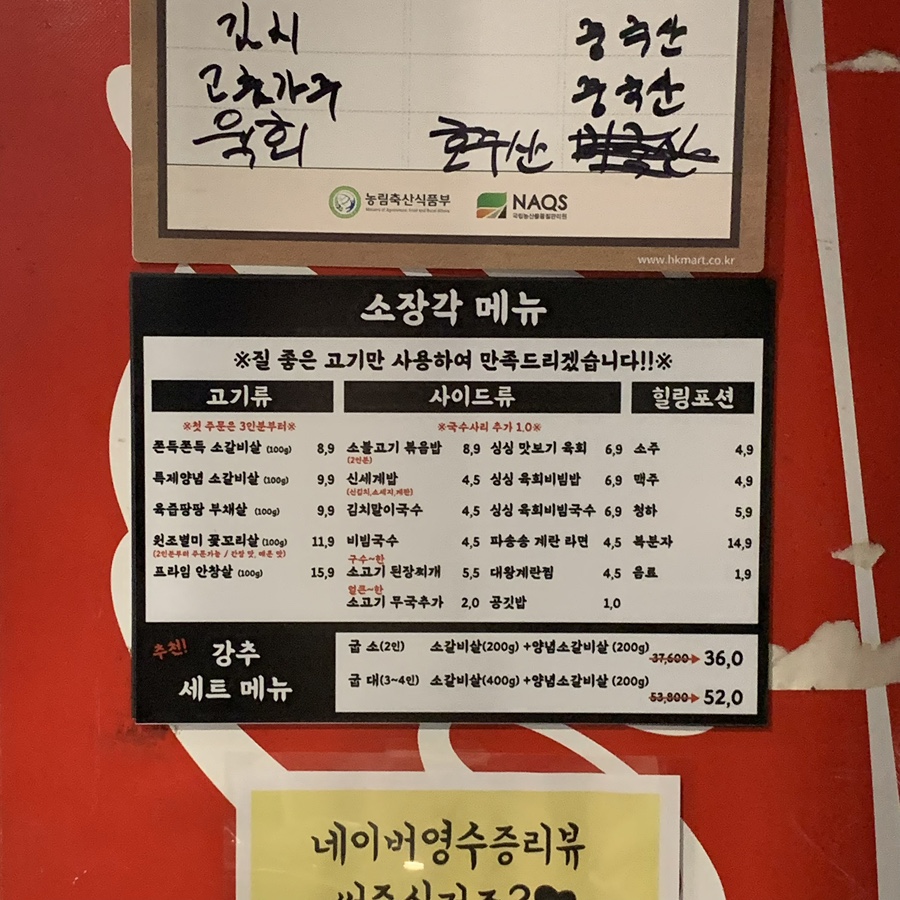 김치 중국산
고춧가루 중국산
육회 호주산
농림축산식품부 NAQS
국립농산물품질관리원
www.hkmart.co.kr
소장각 메뉴
※질 좋은 고기만 사용하여 만족드리겠습니다!!※
고기류 사이드류 힐링포션
※첫 주문은 3인분부터※ ※국수사리 추가 1.0※
쫀득쫀득 소갈비살 (100g) 8,9 소불고기 볶음밥 8,9 싱싱 맛보기 육회 6,9 소주 4,9
(2인분)
특제양념 소갈비살 (100g) 9,9 신세계밥 4,5 싱싱 육회비빔밥 6,9 맥주 4,9
(신김치,소세지,계란)
육즙팡팡 부채살 (100g) 9,9 김치말이국수 4,5 싱싱 육회비빔국수 6,9 청하 5,9
원조별미 꽃꼬리살 (100g) 11,9 비빔국수 4,5 파송송 계란 라면 4,5 복분자 14,9
(2인분부터 주문가능 / 간장 맛, 매운 맛) 구수~한
프라임 안창살 (100g) 15,9 소고기 된장찌개 5,5 대왕계란찜 4,5 음료 1,9
얼큰~한
소고기 무국추가 2,0 공깃밥 1,0
추천! 강추
세트 메뉴
굽 소(2인) 소갈비살(200g) +양념소갈비살 (200g)
37,600 36,0
굽 대(3~4인) 소갈비살(400g) +양념소갈비살 (200g)
53,800 52,0
네이버영수증리뷰